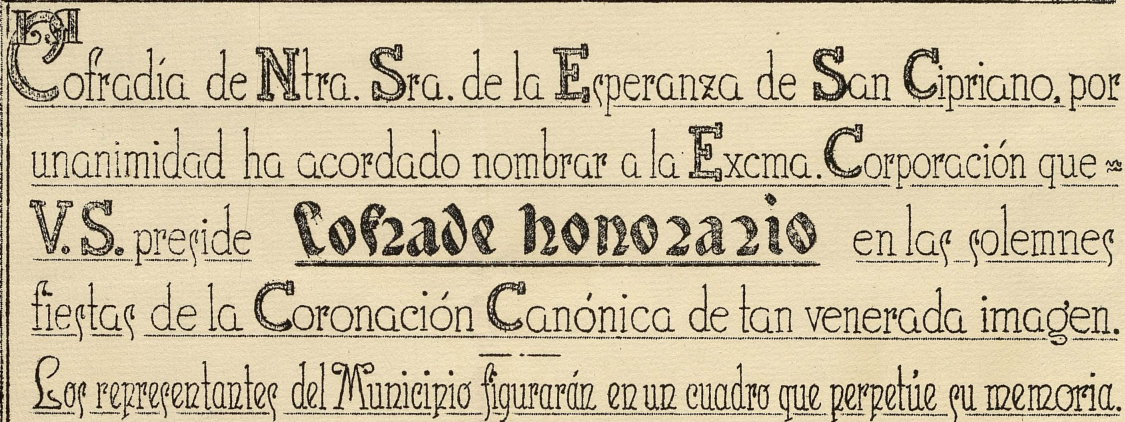 Cofradía de Ntra. Sra. de la Esperanza de San Cipriano, por
unanimidad ha acordado nombrar a la Excma. Corporación que
V. S. preside Cofrade honorario en las solemnes
fiestas de la Coronación Canónica de tan venerada imagen.
Los representantes del Municipio figurarán en un cuadro que perpetúe su memoria.